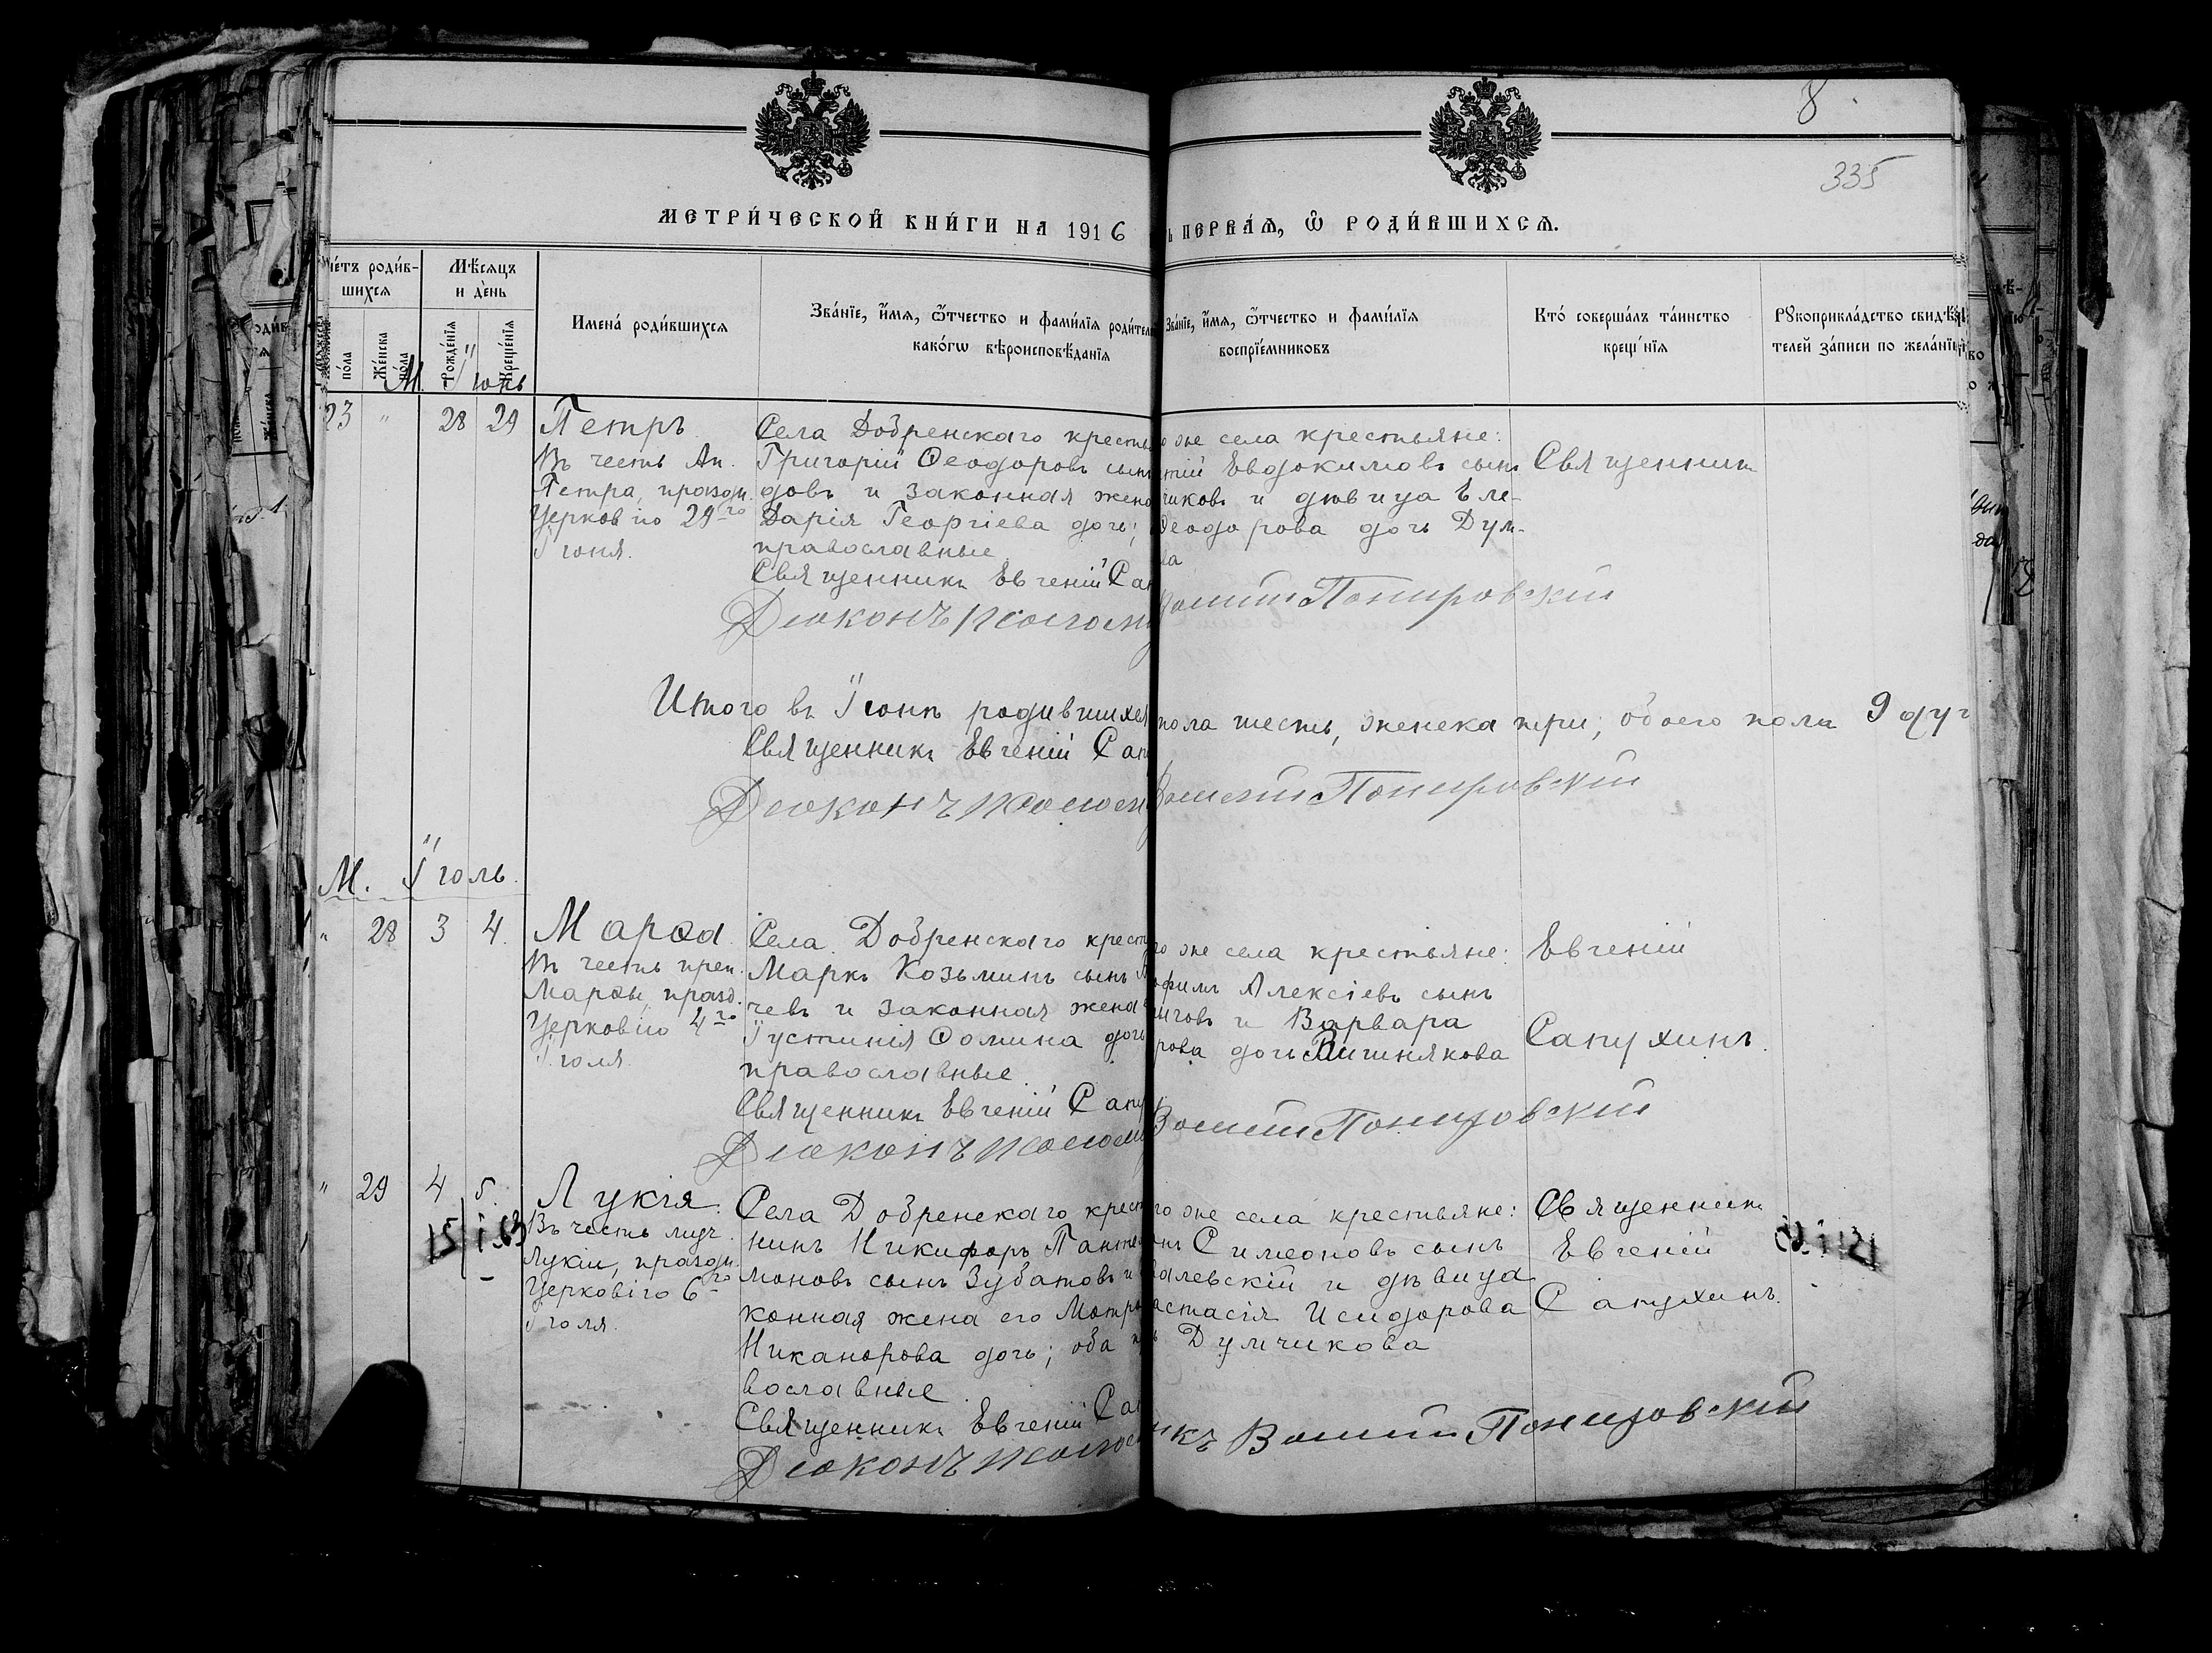 8
335
МЕТРИ́ЧЕСКОЙ КНИ́ГИ НА 1916
ПЕРВАѦ, Ѿ РОДИ́ВШИХСѦ.
роди́в-
шихсѧ
Мѣсѧцъ
и де́нь
по́ла
Же́нска
по́ла
Рожде́нїѧ
Креще́нїѧ
Имена́ роди́вшихсѧ
Зва́нїе, и́мѧ, ѻ҆́тчество и фами́лїѧ родител
како́гѡ вѣроисповѣ́данїѧ
Зва́нїе, и́мѧ, ѻ҆́тчество и фами́лїѧ
воспрїе́мниковъ
Кто́ соверша́лъ та́инство
креще́нїѧ
Рꙋкоприкла́дство свидѣ́
телей за́писи по жела́нїю
М. Іюнь
23 " 28 29
Петръ
Въ честь Ап.
Петра, праздн.
Церковію 29-го
Іюня.
Села Добренскаго кресть
Григорій Ѳеодоровъ сынъ
довъ и законная жена
Дарія Георгіева дочь;
православные
Священникъ Евгеній Сап
Діаконъ
же села крестьяне:
Евдокимовъ сынъ
чиковъ и дѣвица Еле-
Ѳеодорова дочь Дум-
ва
Понировскій
Священникъ
Итого въ Іюнѣ родившихся
пола шесть, женска три; обоего пола 9 душ
Священникъ Евгеній Сап
Діаконъ
Понировскій
М. Іюль.
" 28 3 4.
Марѳа.
Въ честь преп.
Марѳы, празд.
Церковію 4-го
Іюля.
Села Добренскаго крест
Маркъ Козьминъ сынъ
чевъ и законная жена
Іустинія Ѳомина дочь
православные.
Священникъ Евгеній Сапу
Діаконъ
го же села крестьяне:
офилъ Алексіевъ сынъ
чиговъ и Варвара
рова дочь Вишнякова
Понировскій
Евгеній
Сапухинъ.
" 29 4 5.
Лукія.
Въ честь муч.
Лукіи, праздн.
Церковію 6-го
Іюля.
Села Добренскаго крест
нинъ Никифоръ Панте
моновъ сынъ Зубатовъ и
конная жена его Матро
Никанорова дочь; оба п
вославные.
Священникъ Евгеній Сап
Діаконъ
го же села крестьяне:
Симеоновъ сынъ
валевскій и дѣвица
астасія Исидорова
Думчикова
Понировскій
Священникъ
Евгеній
Сапухинъ.